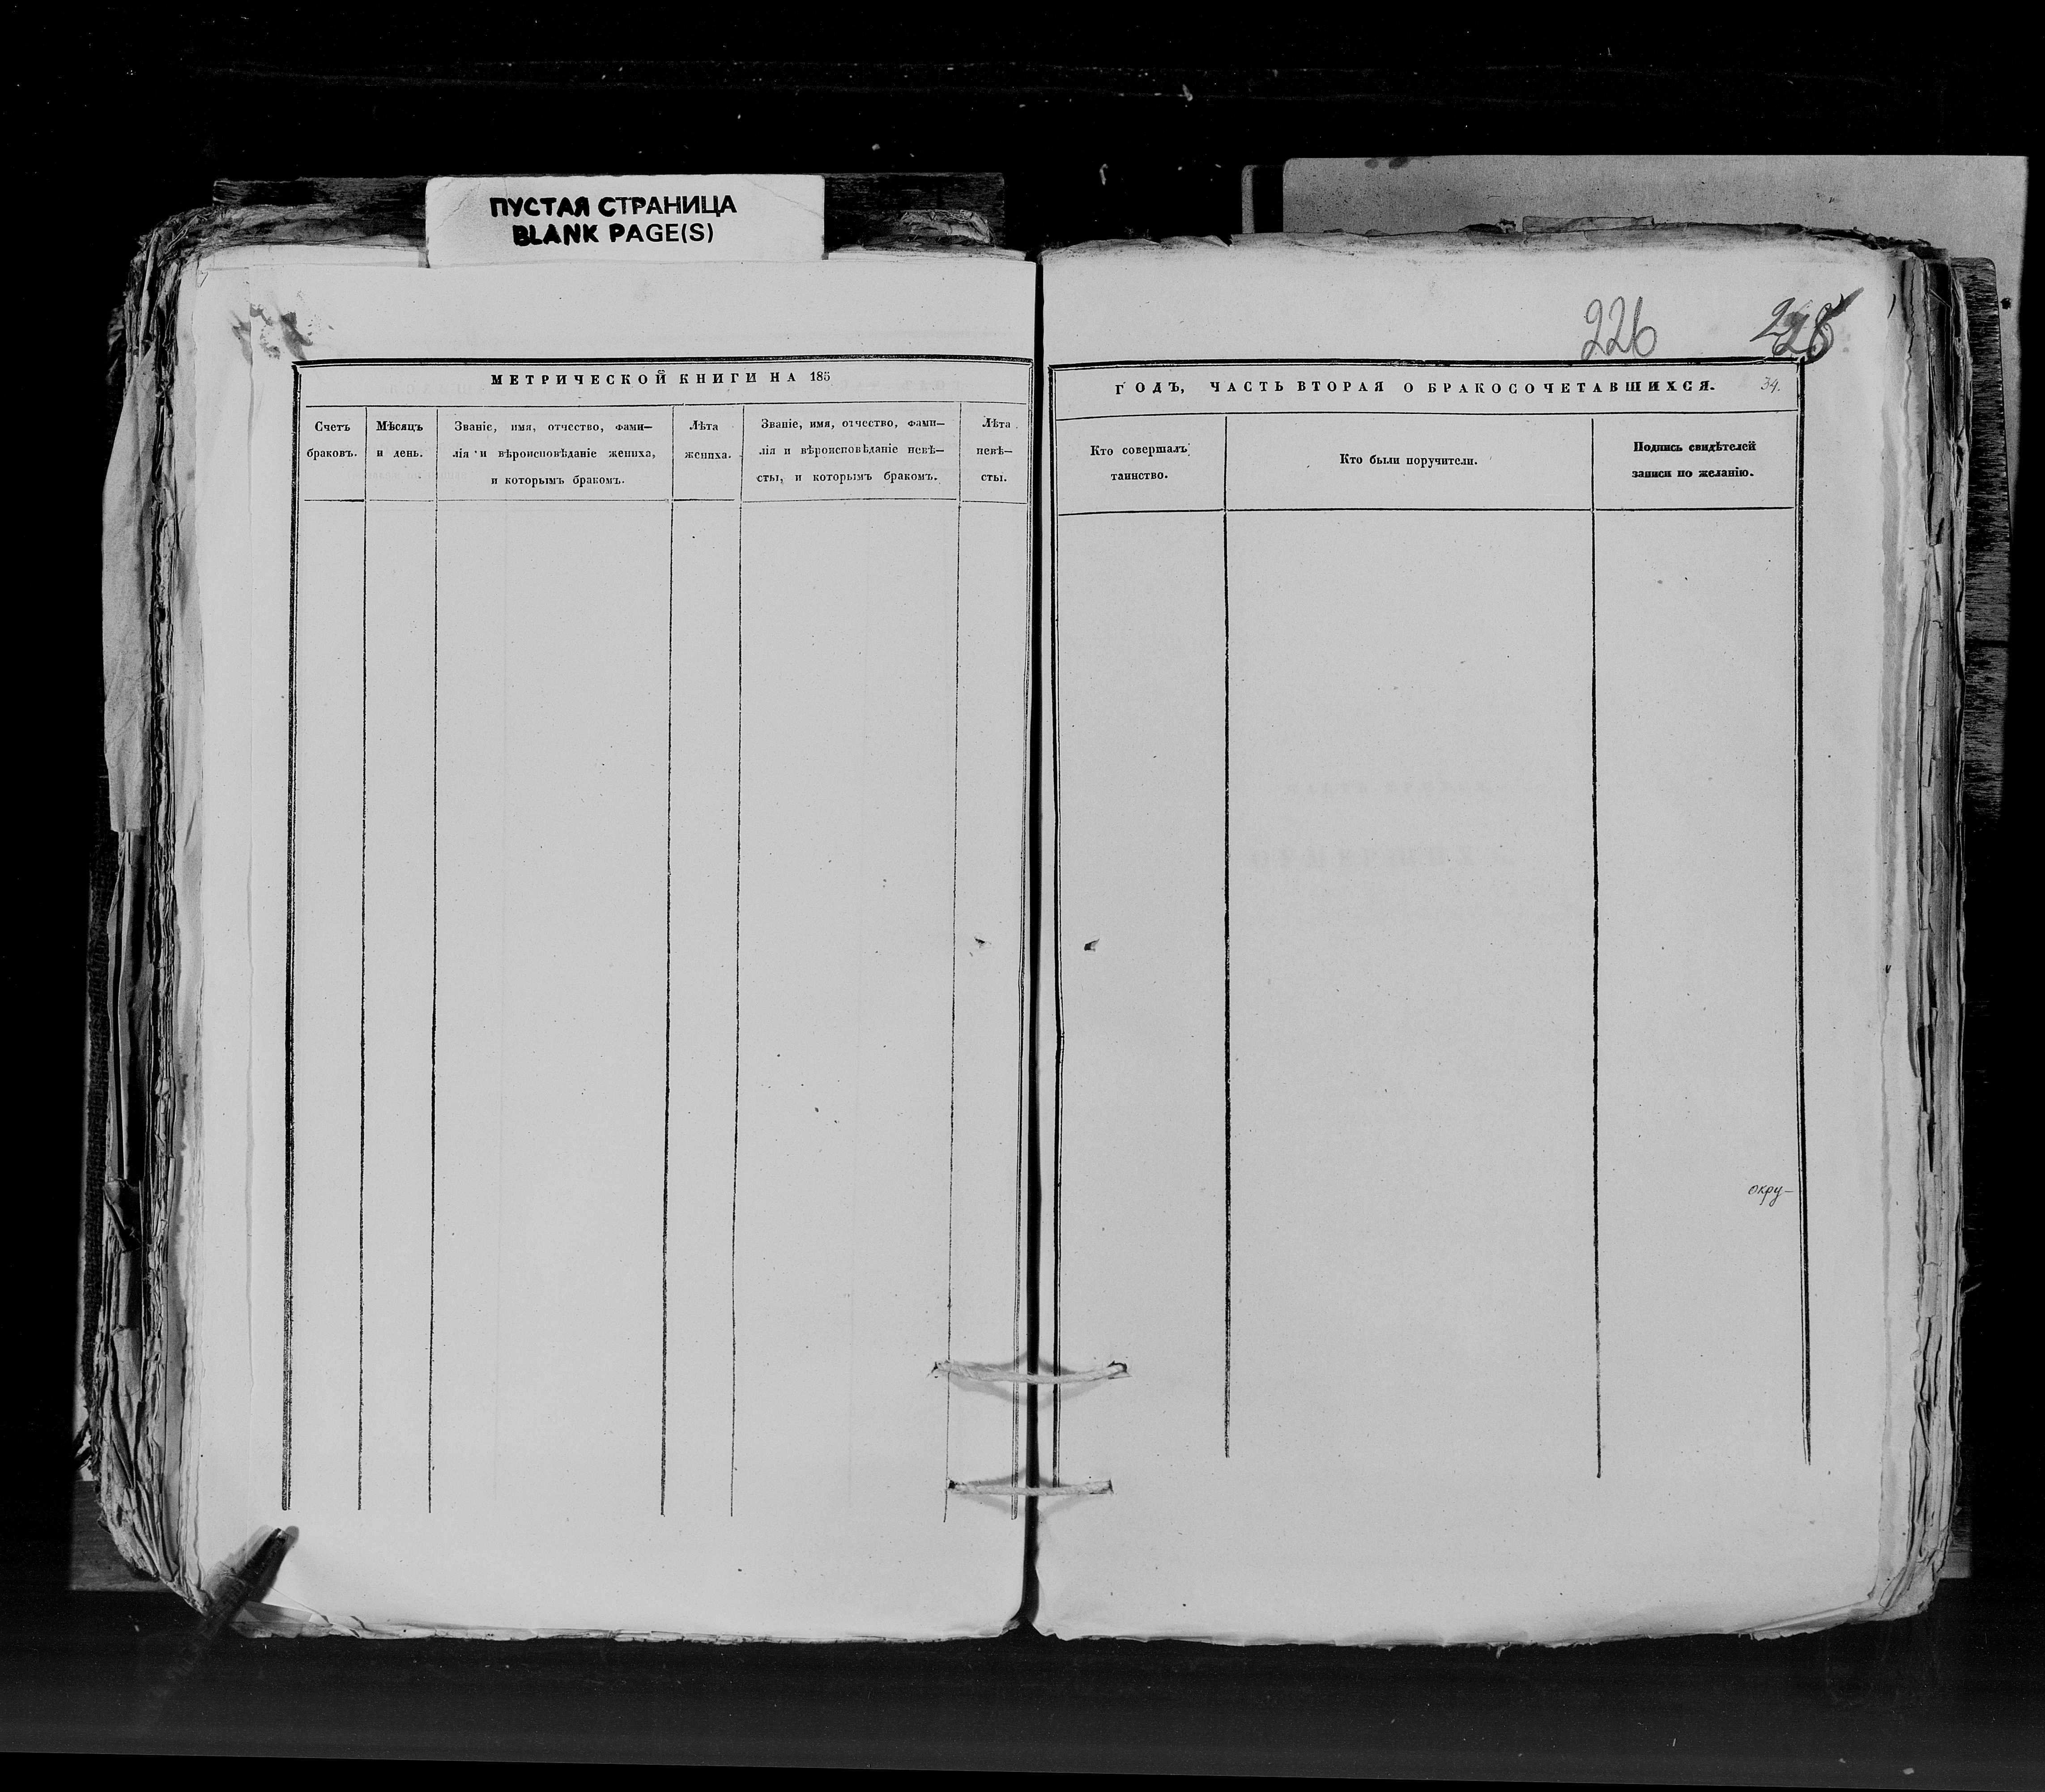 ПУСТАЯ СТРАНИЦА
BLANK PAGE(S)
МЕТРИЧЕСКОЙ КНИГИ НА 185
Счетъ
браковъ.
Мѣсяцъ
и день.
Званіе, имя, отчество, фами—
лія и вѣроисповѣданіе жениха,
и которымъ бракомъ.
Лѣта
жениха.
Званіе, имя, отчество, фами—
лія и вѣроисповѣданіе невѣ—
сты, и которымъ бракомъ.
Лѣта
невѣ—
сты.
226
ГОДЪ, ЧАСТЬ ВТОРАЯ О БРАКОСОЧЕТАВШИХСЯ.
34.
Кто совершалъ
таинство.
Кто были поручители.
Подпись свидѣтелей
записи по желанію.
окру—